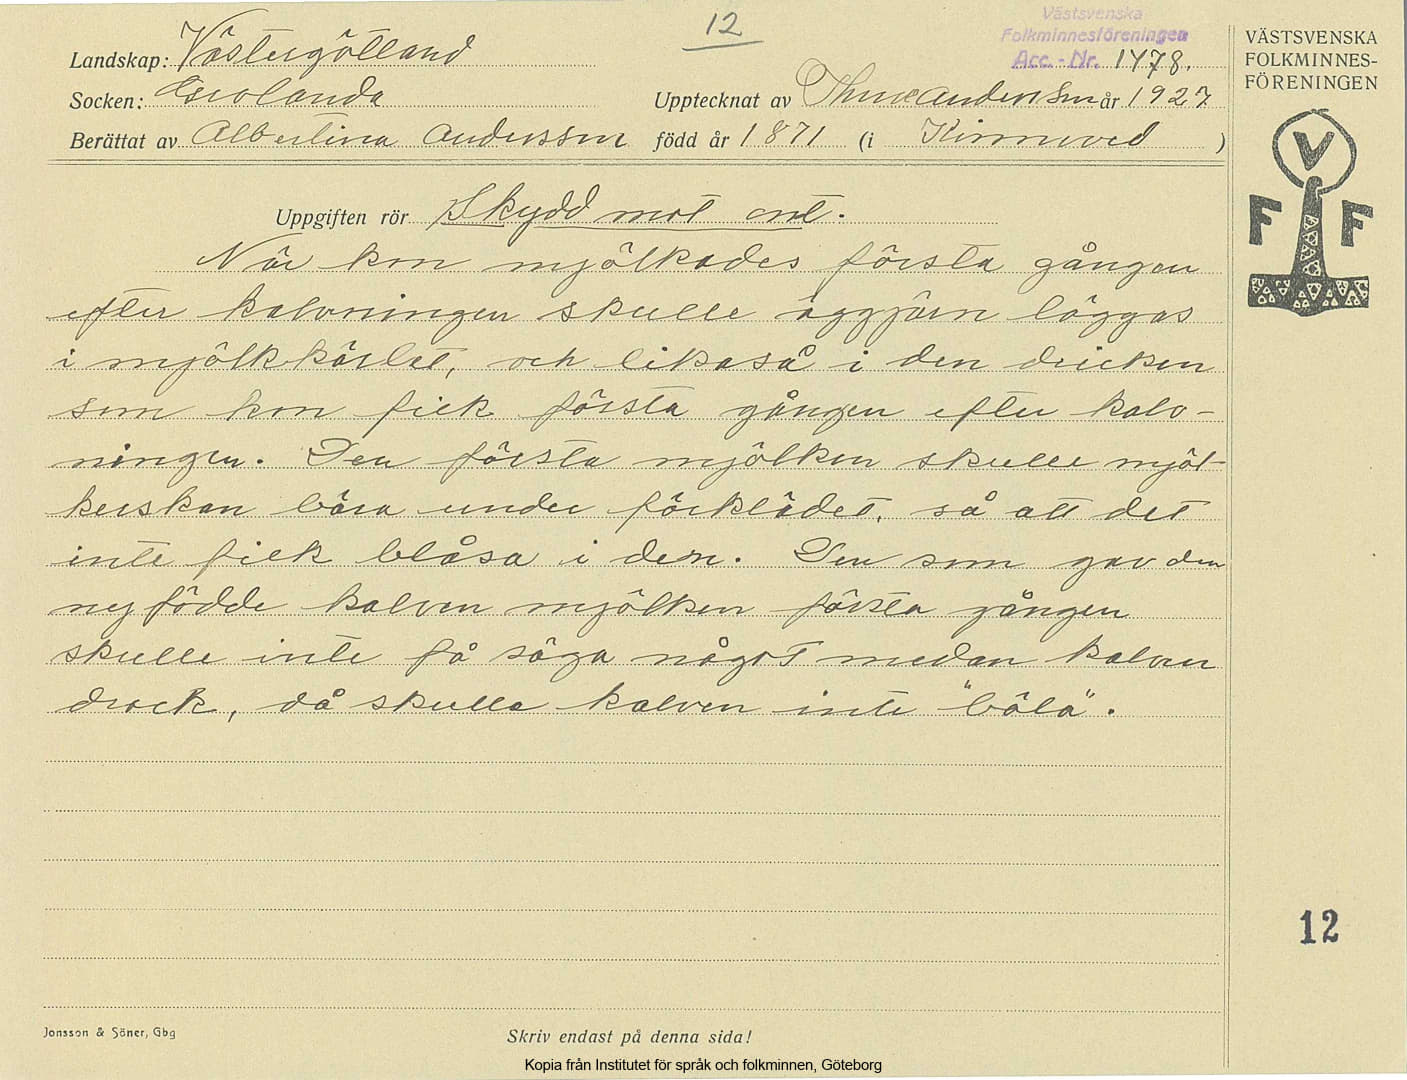 12
Västsvenska
Folkminnesföreningen
Acc. - Nr. 1478.
Landskap: Västergötland
Socken: Esvolanda
Upptecknat av Thure Andersson år 1927
Berättat av Albertina Andersson född år 1871 (i Kinneved )
Uppgiften rör Skydd mot ont.
När kon mjölkades första gången
efter kalvningen skulle äggjärn läggas
i mjölkkärlet, och likaså i den dricken
som kon fick första gången efter kalv-
ningen. Den första mjölken skulle mjöl-
kerskan bära under förklädet, så att det
inte fick blåsa i den. Den som gav den
nyfödde kalven mjölken första gången
skulle inte få säga något medan kalven
drack, då skulle kalven inte "böla".
VÄSTSVENSKA
FOLKMINNES-
FÖRENINGEN
V
F F
12
Jonsson & Söner, Gbg
Skriv endast på denna sida!
Kopia från Institutet för språk och folkminnen, Göteborg